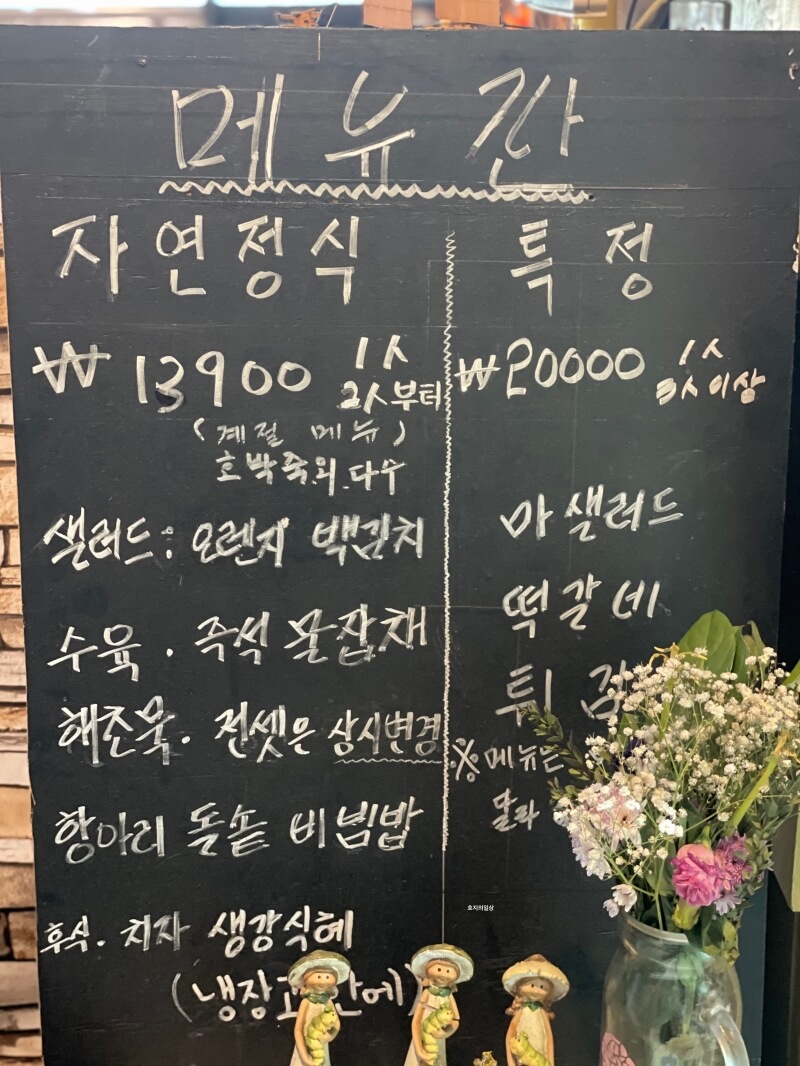 메뉴판
자연정식
₩ 13900 1人
2人부터
(계절 메뉴)
호박죽외.다수
샐러드: 오렌지 백김치
수육. 즉석 잡채
해초묵. 전셋은 상시변경
항아리 돌솥 비빔밥
후식. 치자 생강식혜
(냉장고 안에)
특정
₩20000 1人
3人이상
마 샐러드
떡갈비
튀김
※메뉴는
달라
호지의일상